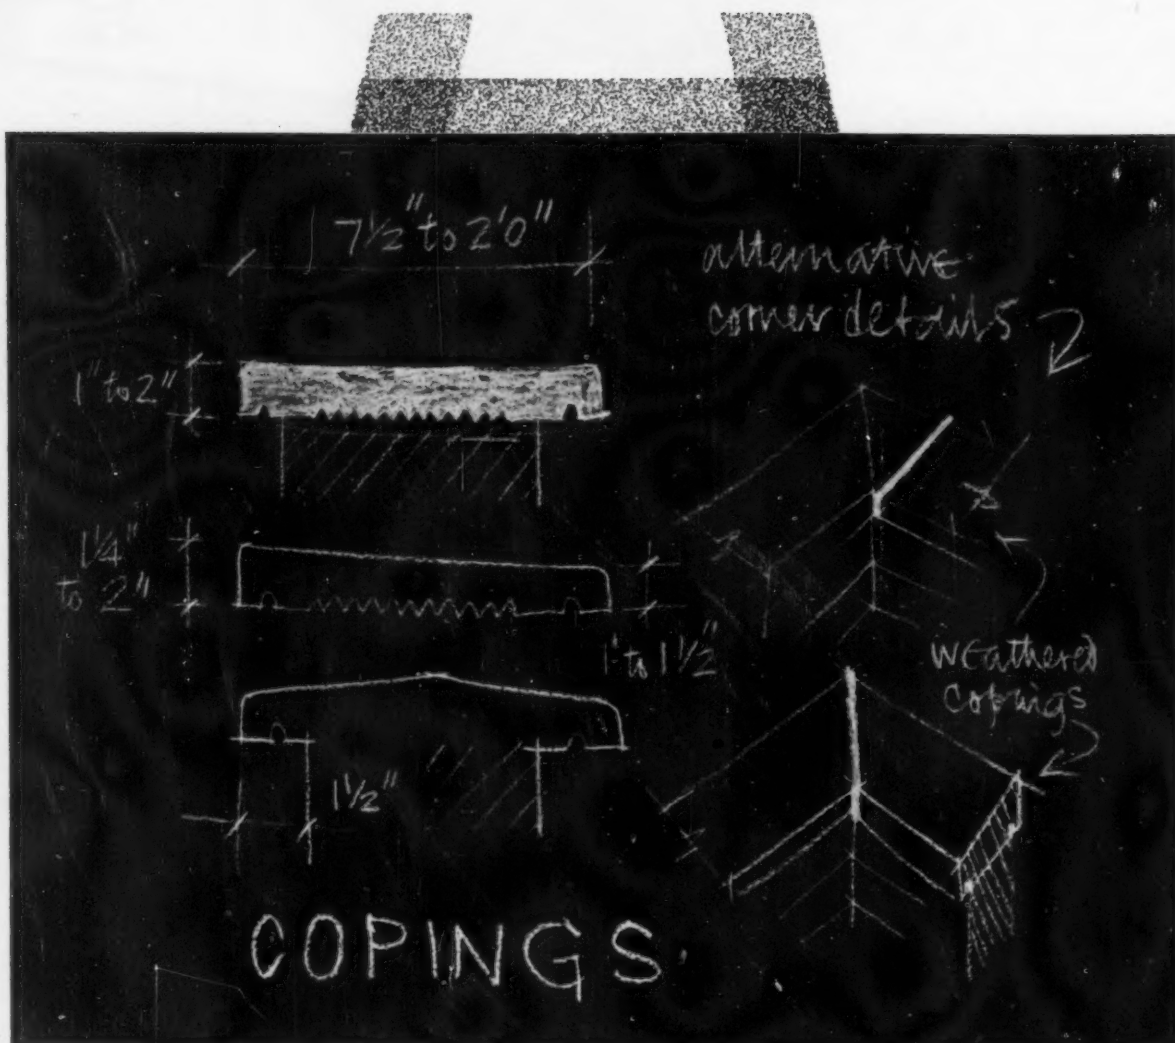 7½" to 2'0"
alternative
corner details
1" to 2"
1¼"
to 2"
1" to 1½"
weathered
copings
1½"
COPINGS